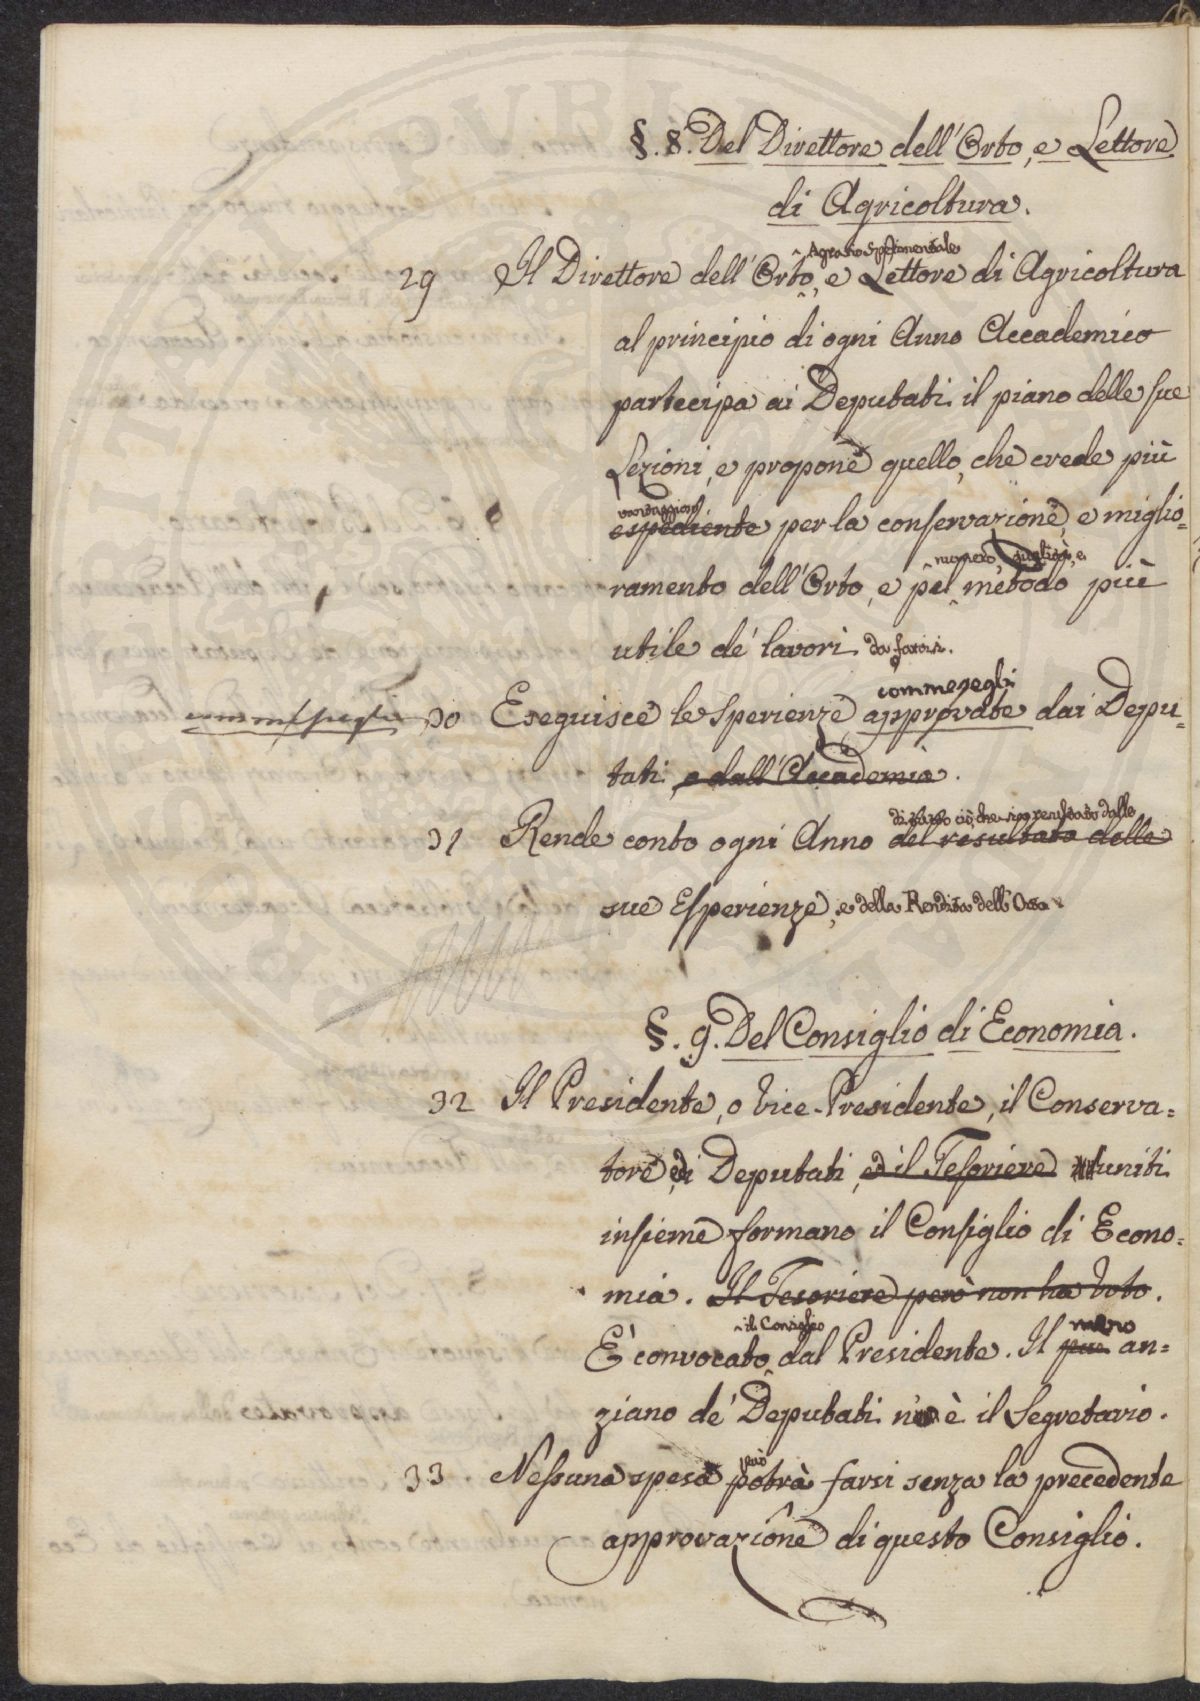 §. 8. Del Direttore dell'Orto, e Lettore
di Agricoltura.
Agrario Sperimentale
29 Il Direttore dell'Orto, e Lettore di Agricoltura
al principio di ogni Anno Accademico
partecipa ai Deputati il piano delle sue
Lezioni, e propone quello, che crede più
vantaggioso
espediente per la conservazione, e miglio=
numero, qualità, e
ramento dell'Orto, e pel metodo più
utile de' lavori da farsi.
commesegli
commesegli 30 Eseguisce le Sperienze approvate dai Depu=
tati e dall'Accademia.
di tutto ciò, che risultato dalle
31 Rende conto ogni Anno del resultato delle
sue Esperienze, e della Rendita dell'Orto
§. 9. Del Consiglio di Economia.
32 Il Presidente, o Vice-Presidente, il Conserva=
tore, ed i Deputati, ed il Tesoriere riuniti
insieme formano il Consiglio di Econo=
mia. Il Tesoriere però non ha Voto.
il Consiglio meno
E' convocato dal Presidente. Il più an=
ziano de' Deputati n'è il Segretario.
può
33. Nessuna spesa potrà farsi senza la precedente
approvazione di questo Consiglio.